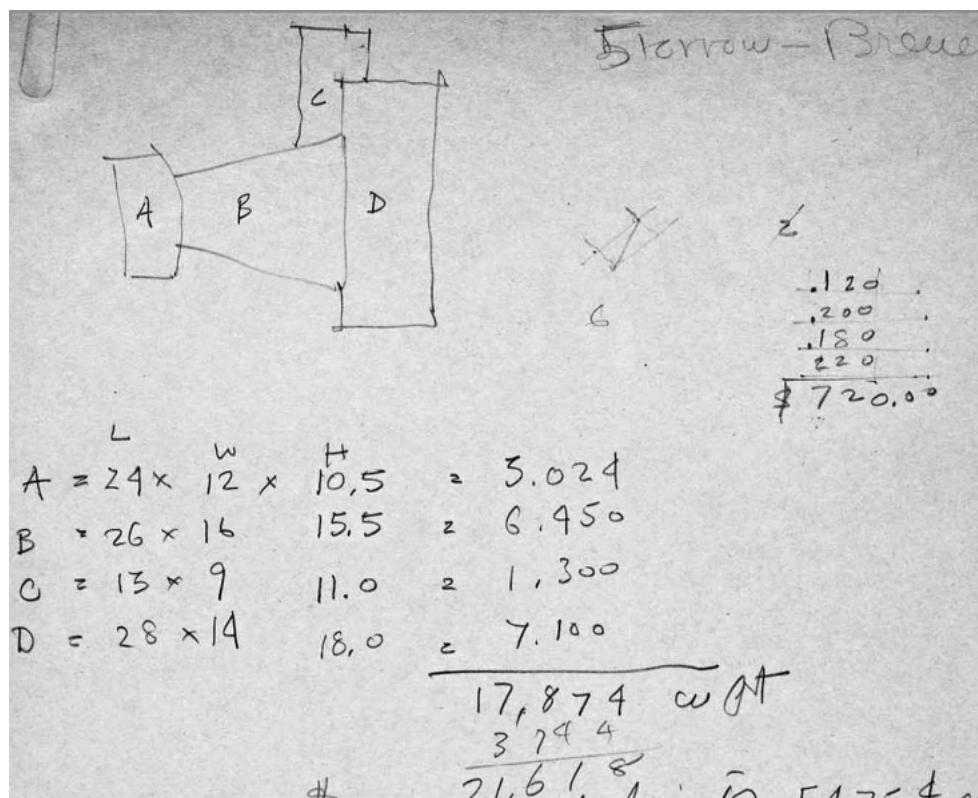 C
A B D
2
.120
.200
6 .180
220
$ 720.00
L W H
A = 24 × 12 × 10.5 = 3.024
B = 26 × 16 15.5 = 6.450
C = 13 × 9 11.0 = 1,300
D = 28 × 14 18.0 = 7.100
17,874 cu ft
3744
21,618